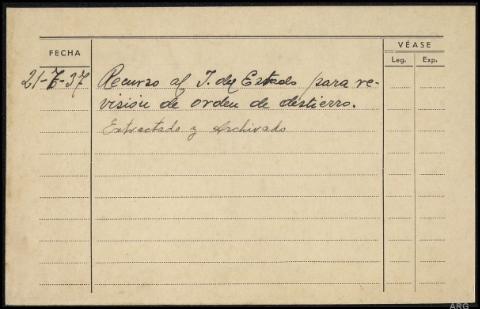 FECHA
VÉASE
Leg. Exp.
21-7-37 Recurso al J. del Estado para re-
visión de orden de destierro.
Extractado y Archivado
ARG